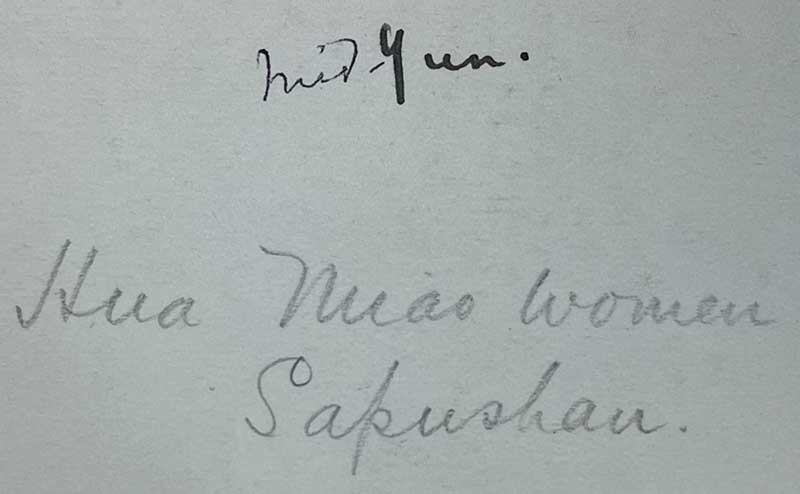 Mid-Yun.
Hua Miao Women
Sapushan.